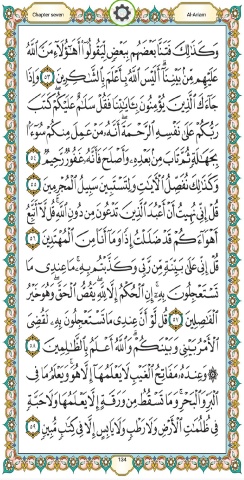 Chapter seven
Al-An'am
وَكَذَٰلِكَ فَتَنَّا بَعْضَهُم بِبَعْضٍ لِّيَقُولُوٓا۟ أَهَٰٓؤُلَآءِ مَنَّ ٱللَّهُ
عَلَيْهِم مِّنۢ بَيْنِنَآ ۗ أَلَيْسَ ٱللَّهُ بِأَعْلَمَ بِٱلشَّٰكِرِينَ ٥٣ وَإِذَا
جَآءَكَ ٱلَّذِينَ يُؤْمِنُونَ بِـَٔايَٰتِنَا فَقُلْ سَلَٰمٌ عَلَيْكُمْ ۖ كَتَبَ
رَبُّكُمْ عَلَىٰ نَفْسِهِ ٱلرَّحْمَةَ ۖ أَنَّهُۥ مَنْ عَمِلَ مِنكُمْ سُوٓءًۢا
بِجَهَٰلَةٍ ثُمَّ تَابَ مِنۢ بَعْدِهِۦ وَأَصْلَحَ فَأَنَّهُۥ غَفُورٌ رَّحِيمٌ ٥٤
وَكَذَٰلِكَ نُفَصِّلُ ٱلْـَٔايَٰتِ وَلِتَسْتَبِينَ سَبِيلُ ٱلْمُجْرِمِينَ ٥٥
قُلْ إِنِّى نُهِيتُ أَنْ أَعْبُدَ ٱلَّذِينَ تَدْعُونَ مِن دُونِ ٱللَّهِ ۚ قُل لَّآ أَتَّبِعُ
أَهْوَآءَكُمْ ۙ قَدْ ضَلَلْتُ إِذًا وَمَآ أَنَا۠ مِنَ ٱلْمُهْتَدِينَ ٥٦
قُلْ إِنِّى عَلَىٰ بَيِّنَةٍ مِّن رَّبِّى وَكَذَّبْتُم بِهِۦ ۚ مَا عِندِى مَا
تَسْتَعْجِلُونَ بِهِۦٓ ۚ إِنِ ٱلْحُكْمُ إِلَّا لِلَّهِ ۖ يَقُصُّ ٱلْحَقَّ ۖ وَهُوَ خَيْرُ
ٱلْفَٰصِلِينَ ٥٧ قُل لَّوْ أَنَّ عِندِى مَا تَسْتَعْجِلُونَ بِهِۦ لَقُضِىَ
ٱلْأَمْرُ بَيْنِى وَبَيْنَكُمْ ۗ وَٱللَّهُ أَعْلَمُ بِٱلظَّٰلِمِينَ ٥٨
۞ وَعِندَهُۥ مَفَاتِحُ ٱلْغَيْبِ لَا يَعْلَمُهَآ إِلَّا هُوَ ۚ وَيَعْلَمُ مَا فِى
ٱلْبَرِّ وَٱلْبَحْرِ ۚ وَمَا تَسْقُطُ مِن وَرَقَةٍ إِلَّا يَعْلَمُهَا وَلَا حَبَّةٍ
فِى ظُلُمَٰتِ ٱلْأَرْضِ وَلَا رَطْبٍ وَلَا يَابِسٍ إِلَّا فِى كِتَٰبٍ مُّبِينٍ ٥٩
134